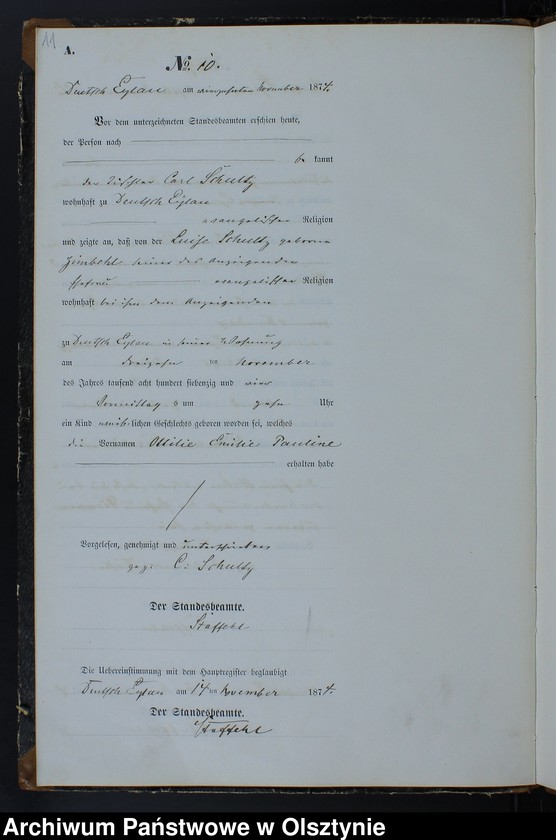 11
A.
No. 10.
Deutsch Eylau am vierzehnten November 1874.
Vor dem unterzeichneten Standesbeamten erschien heute,
der Person nach
be kannt
der Tischler Carl Schultz
wohnhaft zu Deutsch Eylau
evangelischer Religion
und zeigte an, daß von der Luise Schultz geborene
seiner des Anzeigenden
Ehefrau evangelischer Religion
wohnhaft bei ihm dem Anzeigenden
zu Deutsch Eylau in seiner Wohnung
am dreizehn ten November
des Jahres tausend acht hundert siebenzig und vier
Vormittag s um zehn Uhr
ein Kind weib-lichen Geschlechts geboren worden sei, welches
die Vornamen Ottilie Emilie Pauline
erhalten habe
Vorgelesen, genehmigt und unterschrieben
gez: C: Schultz
Der Standesbeamte.
Staffehl
Die Uebereinstimmung mit dem Hauptregister beglaubigt
Deutsch Eylau am 14 ten November 1874.
Der Standesbeamte.
Staffehl
Archiwum Państwowe w Olsztynie